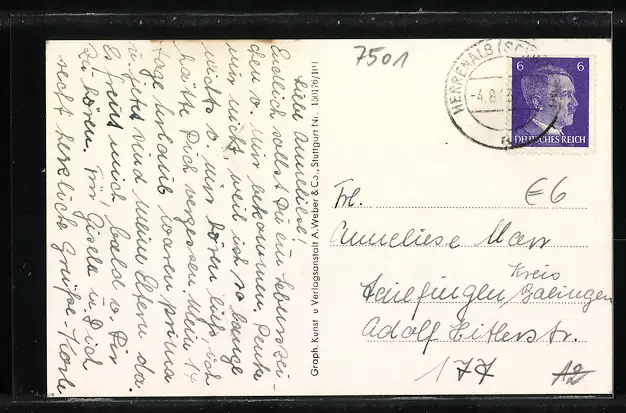 Liebe Anneliese!
Endlich sollst Du ein Lebenszei-
chen v. mir bekommen. Denke
mir nicht, weil ich so lange
nichts v. mir hören ließ, ich
hätte Dich vergessen. Mein 14
Tage Urlaub waren prima
u. jetzt sind meine Eltern da.
Es freut mich bald v. Dir
zu hören. Für Gisela u. Dich
recht herzliche Grüße -
Graph. Kunst u Verlagsanstalt A. Weber & Co., Stuttgart Nr.
7501
HERRENALB (SCHW
-4.8.
6 6
DEUTSCHES REICH
€6
Frl.
Anneliese
Kreis
Balingen
Adolf Hitlerstr.
177
12